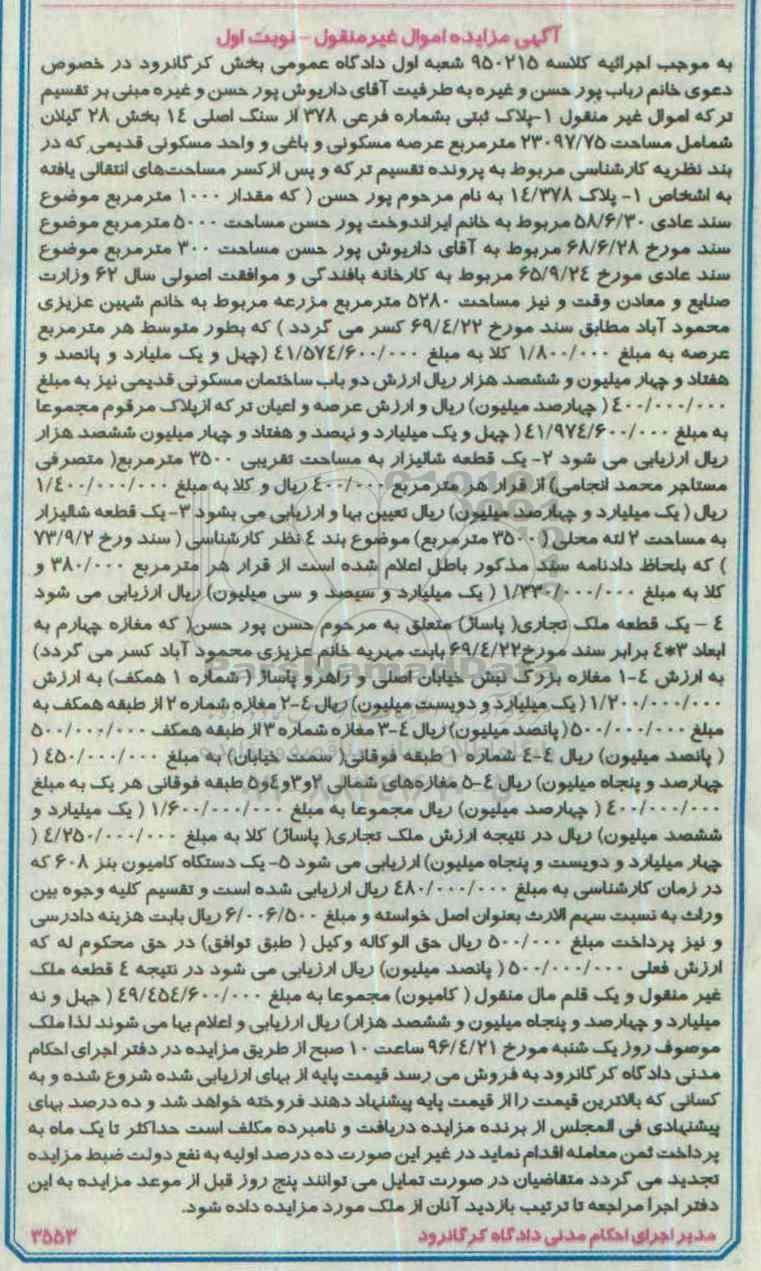 آگهی مزایده اموال غیرمنقول - نوبت اول
به موجب اجرائیه کلاسه ۹۵۰۲۱۵ شعبه اول دادگاه عمومی بخش کرگانرود در خصوص
دعوی خانم رباب پور حسن و غیره به طرفیت آقای داریوش پور حسن و غیره مبنی بر تقسیم
ترکه اموال غیر منقول ۱-پلاک ثبتی بشماره فرعی ۳۷۸ از سنگ اصلی ۱۴ بخش ۲۸ گیلان
شمامل مساحت ۲۳۰۹۷/۷۵ مترمربع عرصه مسکونی و باغی و واحد مسکونی قدیمی که در
بند نظریه کارشناسی مربوط به پرونده تقسیم ترکه و پس از کسر مساحت‌های انتقالی یافته
به اشخاص ۱- پلاک ۱۴/۳۷۸ به نام مرحوم پور حسن ( که مقدار ۱۰۰۰ مترمربع موضوع
سند عادی ۵۸/۶/۳۰ مربوط به خانم ایراندوخت پور حسن مساحت ۵۰۰۰ مترمربع موضوع
سند مورخ ۶۸/۶/۲۸ مربوط به آقای داریوش پور حسن مساحت ۳۰۰ مترمربع موضوع
سند عادی مورخ ۶۵/۹/۲۴ مربوط به کارخانه بافندگی و موافقت اصولی سال ۶۲ وزارت
صنایع و معادن وقت و نیز مساحت ۵۲۸۰ مترمربع مزرعه مربوط به خانم شهین عزیزی
محمود آباد مطابق سند مورخ ۶۹/٤/۲۲ کسر می گردد ) که بطور متوسط هر مترمربع
عرصه به مبلغ ۱/۸۰۰/۰۰۰ کلا به مبلغ ٤۱/۵۷٤/۶۰۰/۰۰۰ (چهل و یک ملیارد و پانصد و
هفتاد و چهار میلیون و ششصد هزار ریال ارزش دو باب ساختمان مسکونی قدیمی نیز به مبلغ
٤۰۰/۰۰۰/۰۰۰ ( چهارصد میلیون) ریال و ارزش عرصه و اعیان ترکه ازپلاک مرقوم مجموعا
به مبلغ ٤۱/۹۷٤/۶۰۰/۰۰۰ ( چهل و یک میلیارد و نهصد و هفتاد و چهار میلیون ششصد هزار
ریال ارزیابی می شود ۲- یک قطعه شالیزار به مساحت تقریبی ۳۵۰۰ مترمربع( متصرفی
مستاجر محمد انجامی) از قرار هر مترمربع ٤۰۰/۰۰۰ ریال و کلا به مبلغ ۱/٤۰۰/۰۰۰/۰۰۰
ریال ( یک میلیارد و چهارصد میلیون) ریال تعیین بها و ارزیابی می بشود ۳- یک قطعه شالیزار
به مساحت ۲ لته محلی ( ۳۵۰۰ مترمربع) موضوع بند ٤ نظر کارشناسی ( سند ورخ ۷۳/۹/۲
) که بلحاظ دادنامه سند مذکور باطل اعلام شده است از قرار هر مترمربع ۳۸۰/۰۰۰ و
کلا به مبلغ ۱/۳۳۰/۰۰۰/۰۰۰ ( یک میلیارد و سیصد و سی میلیون) ریال ارزیابی می شود
٤ - یک قطعه ملک تجاری( پاساژ) متعلق به مرحوم حسن پور حسن( که مغازه چهارم به
ابعاد ۳*٤ برابر سند مورخ۶۹/٤/۲۲ بابت مهریه خانم عزیزی محمود آباد کسر می گردد)
به ارزش ٤-۱ مغازه بزرگ نبش خیابان اصلی و راهرو پاساژ ( شماره ۱ همکف) به ارزش
۱/۲۰۰/۰۰۰/۰۰۰ ( یک میلیارد و دویست میلیون) ریال ٤-۲ مغازه شماره ۲ از طبقه همکف به
مبلغ ۵۰۰/۰۰۰/۰۰۰ ( پانصد میلیون) ریال ٤-۳ مغازه شماره ۳ از طبقه همکف ۵۰۰/۰۰۰/۰۰۰
( پانصد میلیون) ریال ٤-٤ شماره ۱ طبقه فوقانی( سمت خیابان) به مبلغ ٤۵۰/۰۰۰/۰۰۰ (
چهارصد و پنجاه میلیون) ریال ٤-۵ مغازه‌های شمالی ۲و۳و٤و۵ طبقه فوقانی هر یک به مبلغ
٤۰۰/۰۰۰/۰۰۰ ( چهارصد میلیون) ریال مجموعا به مبلغ ۱/۶۰۰/۰۰۰/۰۰۰ ( یک میلیارد و
ششصد میلیون) ریال در نتیجه ارزش ملک تجاری( پاساژ) کلا به مبلغ ٤/۲۵۰/۰۰۰/۰۰۰ (
چهار میلیارد و دویست و پنجاه میلیون) ارزیابی می شود ۵- یک دستگاه کامیون بنز ۶۰۸ که
در زمان کارشناسی به مبلغ ٤۸۰/۰۰۰/۰۰۰ ریال ارزیابی شده است و تقسیم کلیه وجوه بین
وراث به نسبت سهم الارث بعنوان اصل خواسته و مبلغ ۶/۰۰۶/۵۰۰ ریال بابت هزینه دادرسی
و نیز پرداخت مبلغ ۵۰۰/۰۰۰ ریال حق الوکاله وکیل ( طبق توافق) در حق محکوم له که
ارزش فعلی ۵۰۰/۰۰۰/۰۰۰ ( پانصد میلیون) ریال ارزیابی می شود در نتیجه ٤ قطعه ملک
غیر منقول و یک قلم مال منقول ( کامیون) مجموعا به مبلغ ٤۹/٤۵٤/۶۰۰/۰۰۰ ( چهل و نه
میلیارد و چهارصد و پنجاه میلیون و ششصد هزار) ریال ارزیابی و اعلام بها می شوند لذا ملک
موصوف روز یک شنبه مورخ ۹۶/٤/۲۱ ساعت ۱۰ صبح از طریق مزایده در دفتر اجرای احکام
مدنی دادگاه کرگانرود به فروش می رسد قیمت پایه از بهای ارزیابی شده شروع شده و به
کسانی که بالاترین قیمت را از قیمت پایه پیشنهاد دهند فروخته خواهد شد و ده درصد بهای
پیشنهادی فی المجلس از برنده مزایده دریافت و نامبرده مکلف است حداکثر تا یک ماه به
پرداخت ثمن معامله اقدام نماید در غیر این صورت ده درصد اولیه به نفع دولت ضبط مزایده
تجدید می گردد متقاضیان در صورت تمایل می توانند پنج روز قبل از موعد مزایده به این
دفتر اجرا مراجعه تا ترتیب بازدید آنان از ملک مورد مزایده داده شود.
مدیر اجرای احکام مدنی دادگاه کرگانرود
۳۵۵۳
ParsNamadData